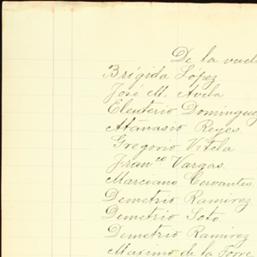 De la vuelta
Brígida Lopez
José M. Avila
Eleuterio Dominguez
Atanasio Reyes
Gregorio Vitela
Fran.co Vargas
Marceano Cervantes
Demetrio Ramirez
Demetrio Soto
Demetrio Ramirez
Maximo de la Torre